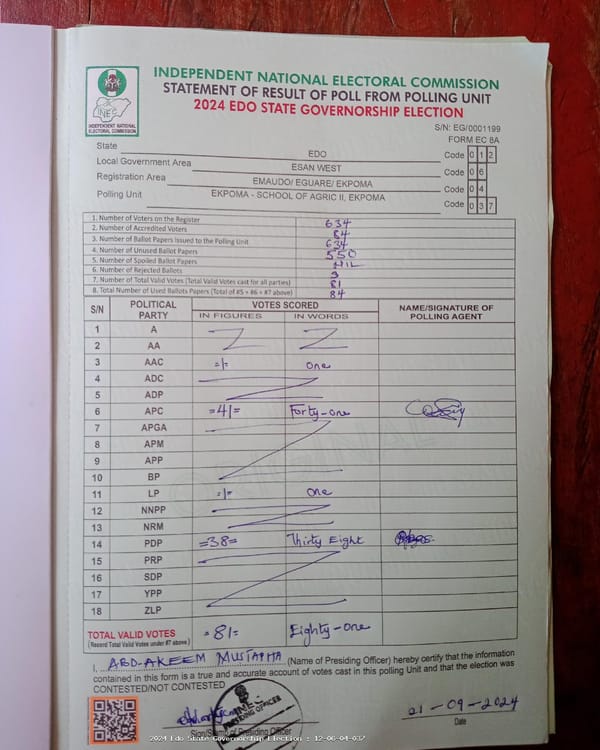 INDEPENDENT NATIONAL ELECTORAL COMMISSION
STATEMENT OF RESULT OF POLL FROM POLLING UNIT
2024 EDO STATE GOVERNORSHIP ELECTION
INEC
INDEPENDENT NATIONAL
ELECTORAL COMMISSION
S/N: EG/0001199
FORM EC 8A
State EDO Code 0 1 2
Local Government Area ESAN WEST Code 0 6
Registration Area EMAUDO/ EGUARE/ EKPOMA Code 0 4
Polling Unit EKPOMA - SCHOOL OF AGRIC II, EKPOMA Code 0 3 7
1. Number of Voters on the Register 634
2. Number of Accredited Voters 84
3. Number of Ballot Papers Issued to the Polling Unit 634
4. Number of Unused Ballot Papers 550
5. Number of Spoiled Ballot Papers NIL
6. Number of Rejected Ballots 3
7. Number of Total Valid Votes (Total Valid Votes cast for all parties) 81
8. Total Number of Used Ballots Papers (Total of #5 + #6 + #7 above) 84
S/N POLITICAL PARTY VOTES SCORED NAME/SIGNATURE OF POLLING AGENT
IN FIGURES IN WORDS
1 A
2 AA
3 AAC =1= One
4 ADC
5 ADP
6 APC =41= Forty-one
7 APGA
8 APM
9 APP
10 BP
11 LP =1= One
12 NNPP
13 NRM
14 PDP =38= Thirty Eight
15 PRP
16 SDP
17 YPP
18 ZLP
TOTAL VALID VOTES =81= Eighty-One
(Record Total Valid Votes under #7 above)
I, ABD-AKEEM MUSTAPHA (Name of Presiding Officer) hereby certify that the information
contained in this form is a true and accurate account of votes cast in this polling Unit and that the election was
CONTESTED/NOT CONTESTED
INEC
PRESIDING OFFICER
21-09-2024
Sign/Stamp of Presiding Officer
Date
2024 Edo State Governorship Election : 12-06-04-037